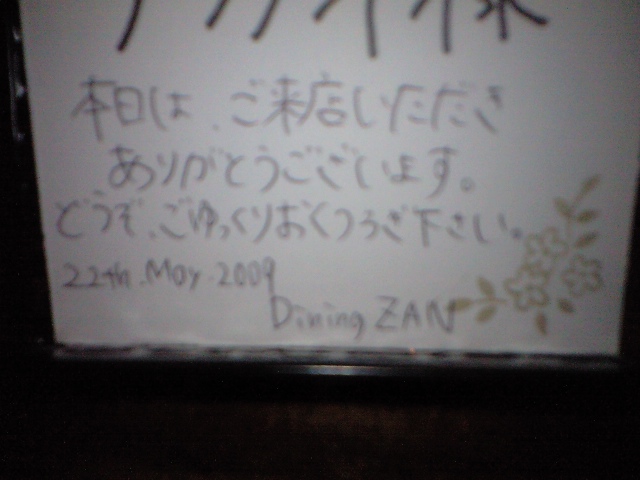 様
本日は、ご来店いただき
ありがとうございます。
どうぞ、ごゆっくりおくつろぎ下さい。
22th.May.2009
Dining ZAN